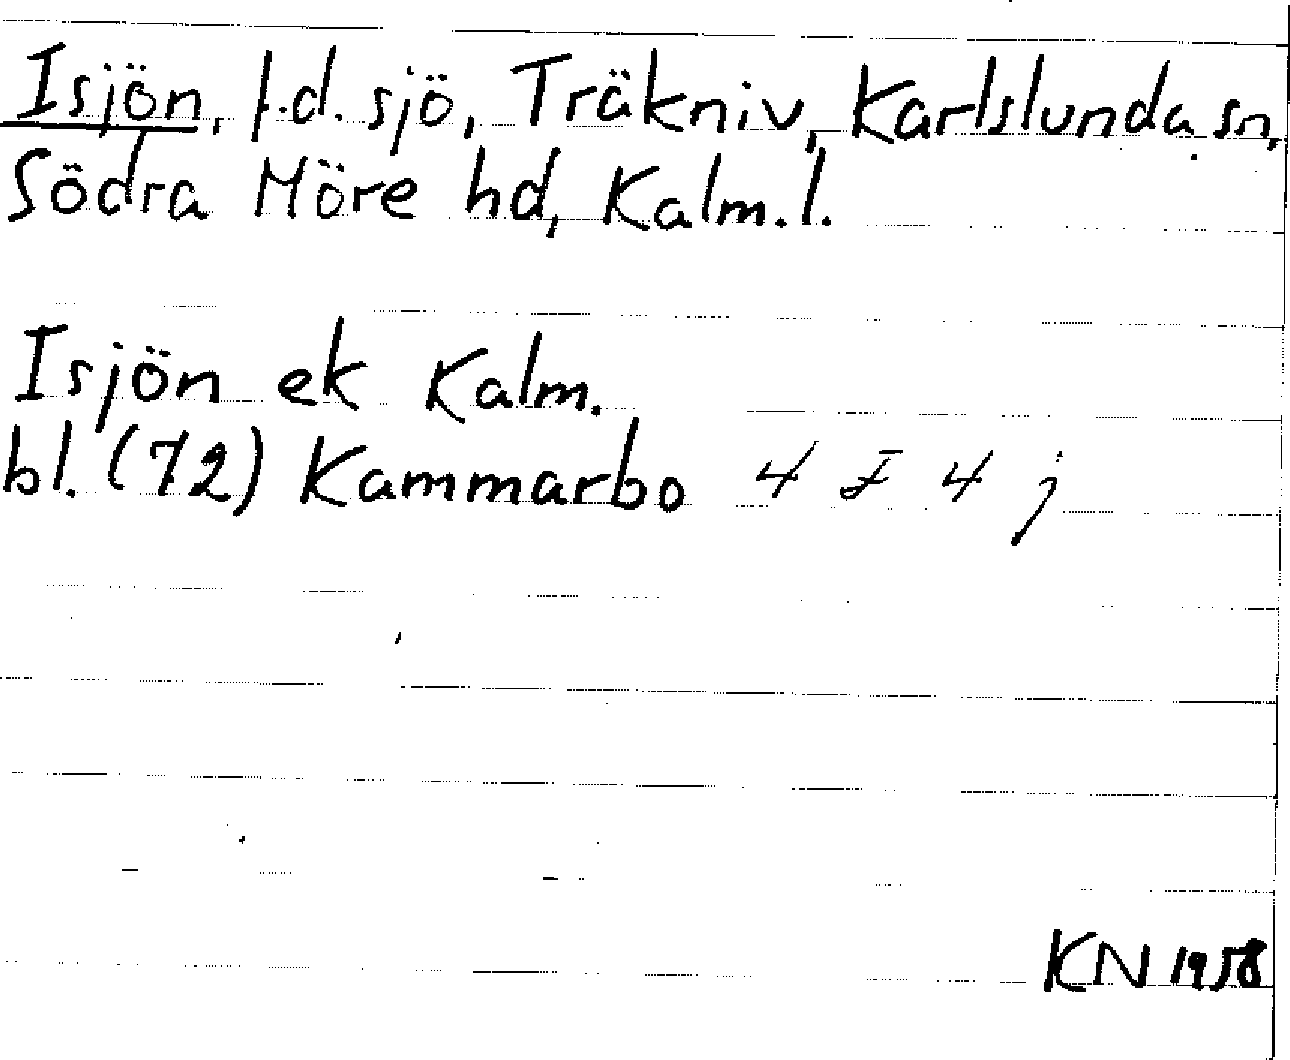 Isjön, f.d. sjö, Träkniv, Karlslunda sn,
Södra Möre hd, Kalm. l.
Isjön ek Kalm.
bl. (72) Kammarbo 4 F 4 j
KN 1958